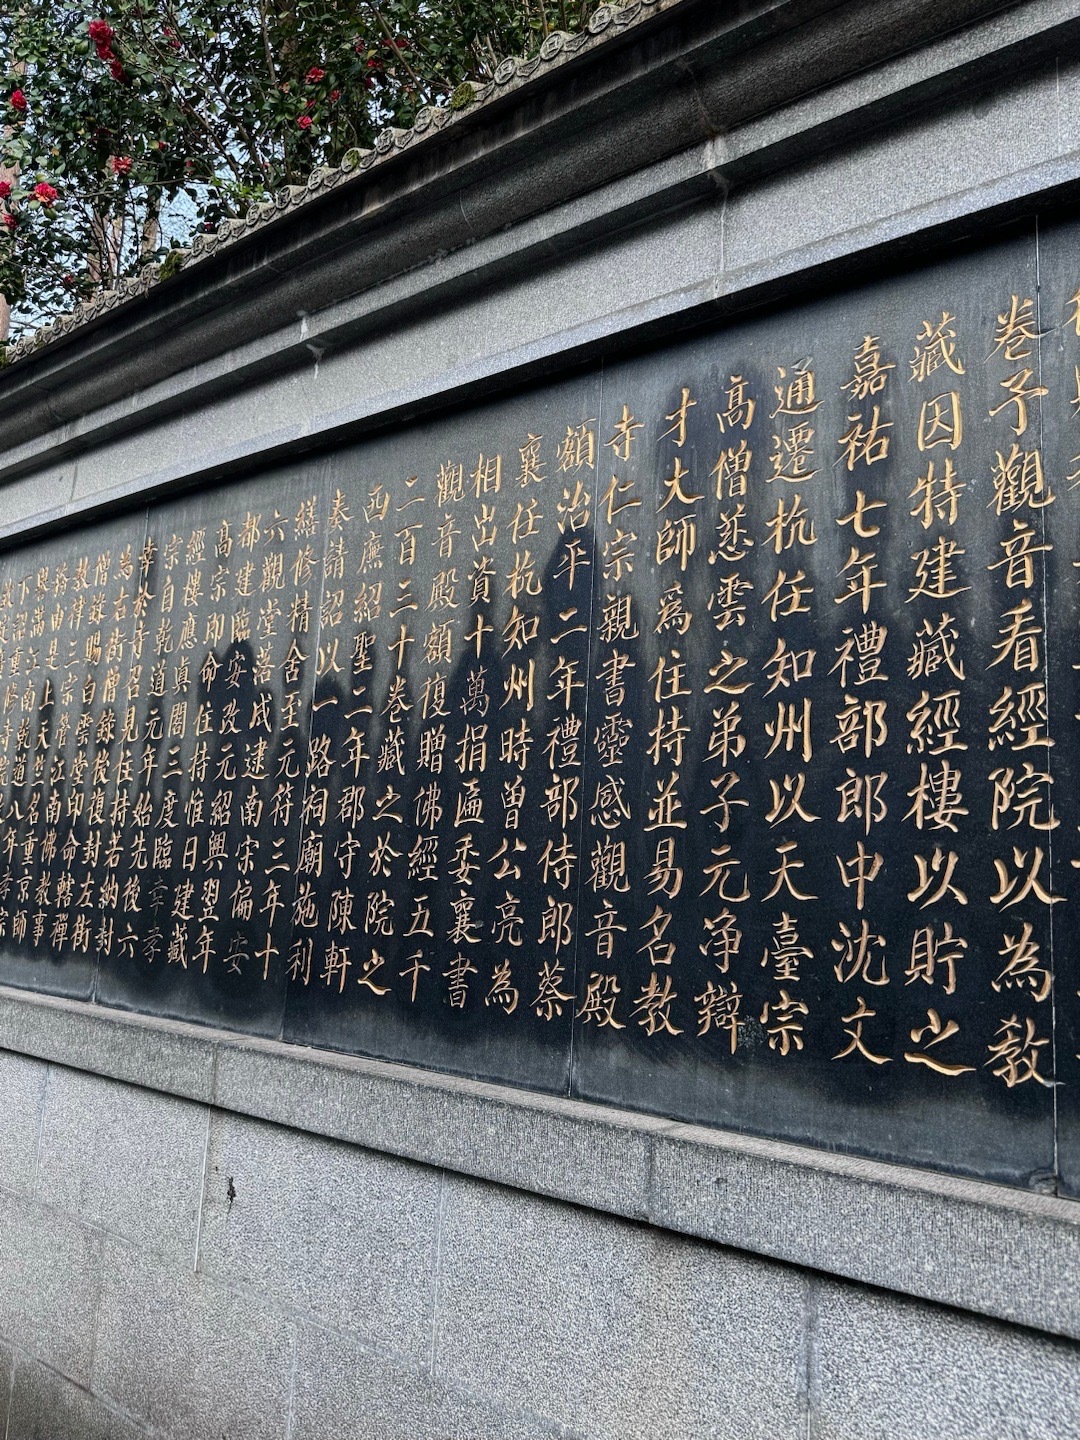 卷予觀音看經院以為教
藏因特建藏經樓以貯之
嘉祐七年禮部郎中沈文
通遷杭任知州以天臺宗
高僧慈雲之弟子元净辯
才大師為住持並易名教
寺仁宗親書靈感觀音殿
額治平二年禮部侍郎蔡
襄任杭知州時曾公亮為
相出資十萬捐匾委襄書
觀音殿額復贈佛經五千
二百三十卷藏之於院之
西廡紹聖二年郡守陳軒
奏請詔以一路祠廟施利
繕修精舍至元符三年十
六觀堂落成逮南宋偏安
都建臨安改元紹興翌年
高宗即命住持惟日建藏
經樓應真閣三度臨幸孝
宗自乾道元年始先後六
幸於寺召見住持若納封
為右街僧錄後復封左街
僧錄賜白雲堂印命轄禪
教律三宗管江南佛教事